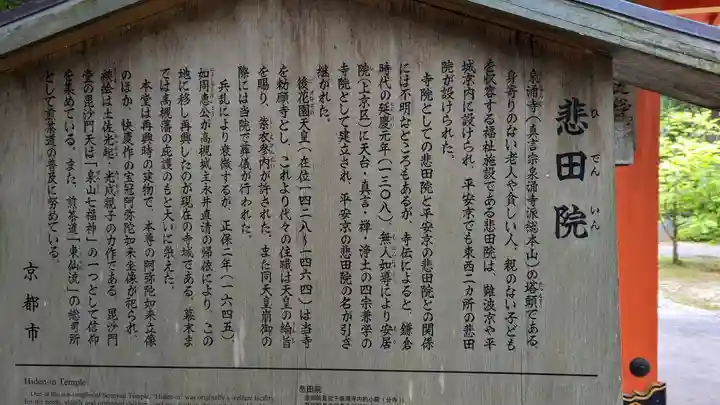 悲田院
ひでんいん
泉涌寺(真言宗泉涌寺派総本山)の塔頭である。
身寄りのない老人や貧しい人、親のない子ども
を収容する福祉施設である悲田院は、難波京や平
城京内に設けられ、平安京でも東西二カ所の悲田
院が設けられた。
寺院としての悲田院と平安京の悲田院との関係
には不明なところもあるが、寺伝によると、鎌倉
時代の延慶元年(一三〇八)、無人如導により安居
院(上京区)に天台・真言・禅・浄土の四宗兼学の
寺院として建立され、平安京の悲田院の名が引き
継がれた。
後花園天皇(在位一四二八〜一四六四)は当寺
を勅願寺とし、これより代々の住職は天皇の綸旨
を賜り、紫衣参内が許された。また同天皇崩御の
際には当院で葬儀が行われた。
兵乱により衰微するが、正保二年(一六四五)
如周恵公が高槻城主永井直清の帰依により、この
地に移し再興したのが現在の寺域である。幕末ま
では高槻藩の庇護のもと大いに栄えた。
本堂は再興時の建物で、本尊の阿弥陀如来立像
のほか、快慶作の宝冠阿弥陀如来坐像が祀られ、
襖絵は土佐光起・光成親子の力作である。毘沙門
堂の毘沙門天は「泉山七福神」の一つとして信仰
を集めている。また、煎茶道「東仙流」の総司所
として煎茶道の普及に努めている。
京都市
Hiden-in Temple
悲田院